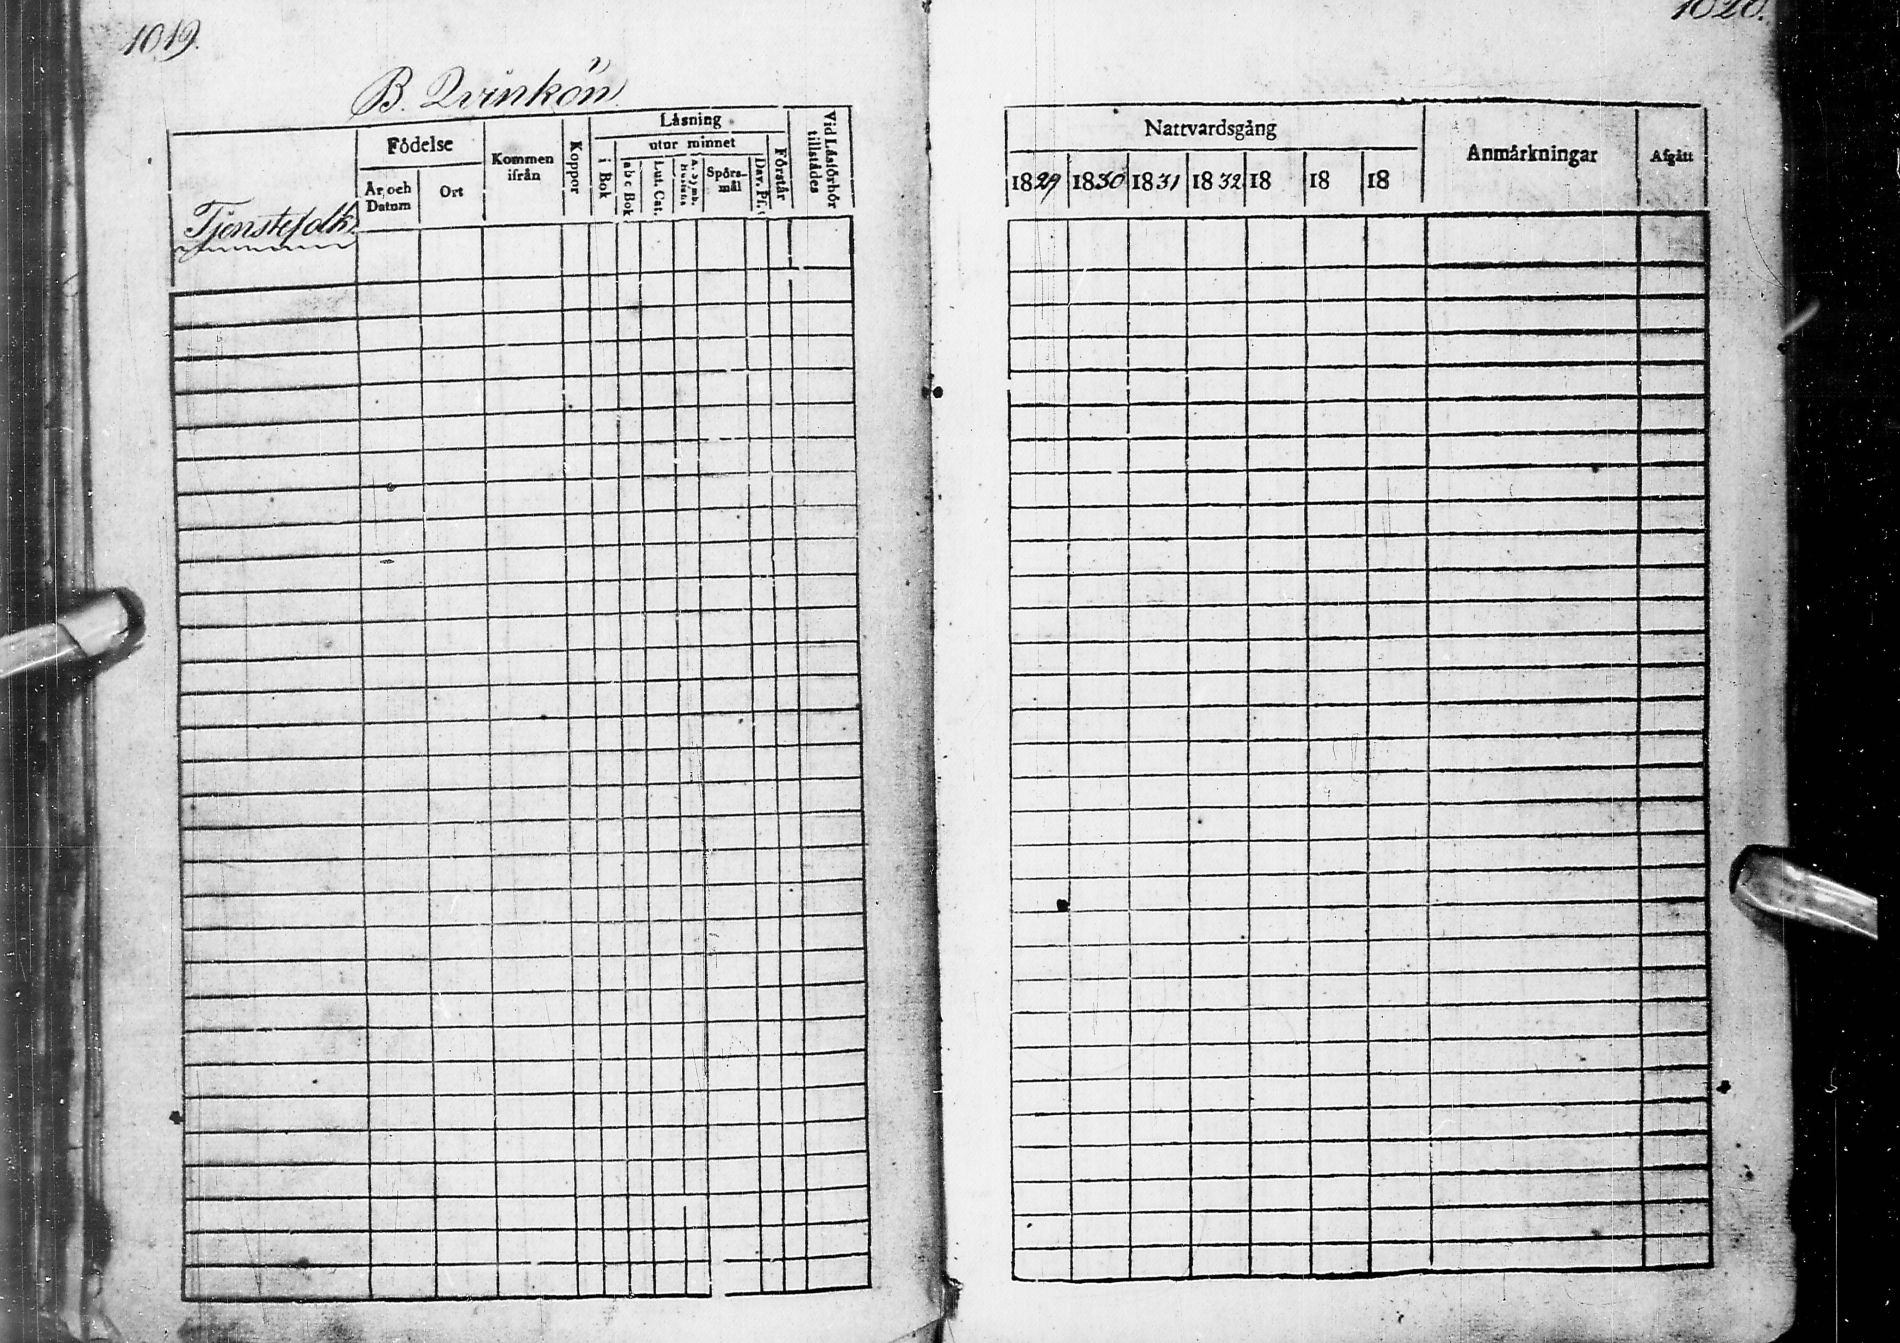 1019.
B. Qvinkön
Födelse
Kommen ifrån
Koppor
Läsning
utur minnet
i Bok
a b c Bok
Lut. Cat.
Spörs-mål
Dav. Ps.
Förstår
Vid Läsförhör tillstädes
År och Datum
Ort
Tjenstefolk
1020.
Nattvardsgång
Anmärkningar
Afgått
1829 1830 1831 1832 18 18 18